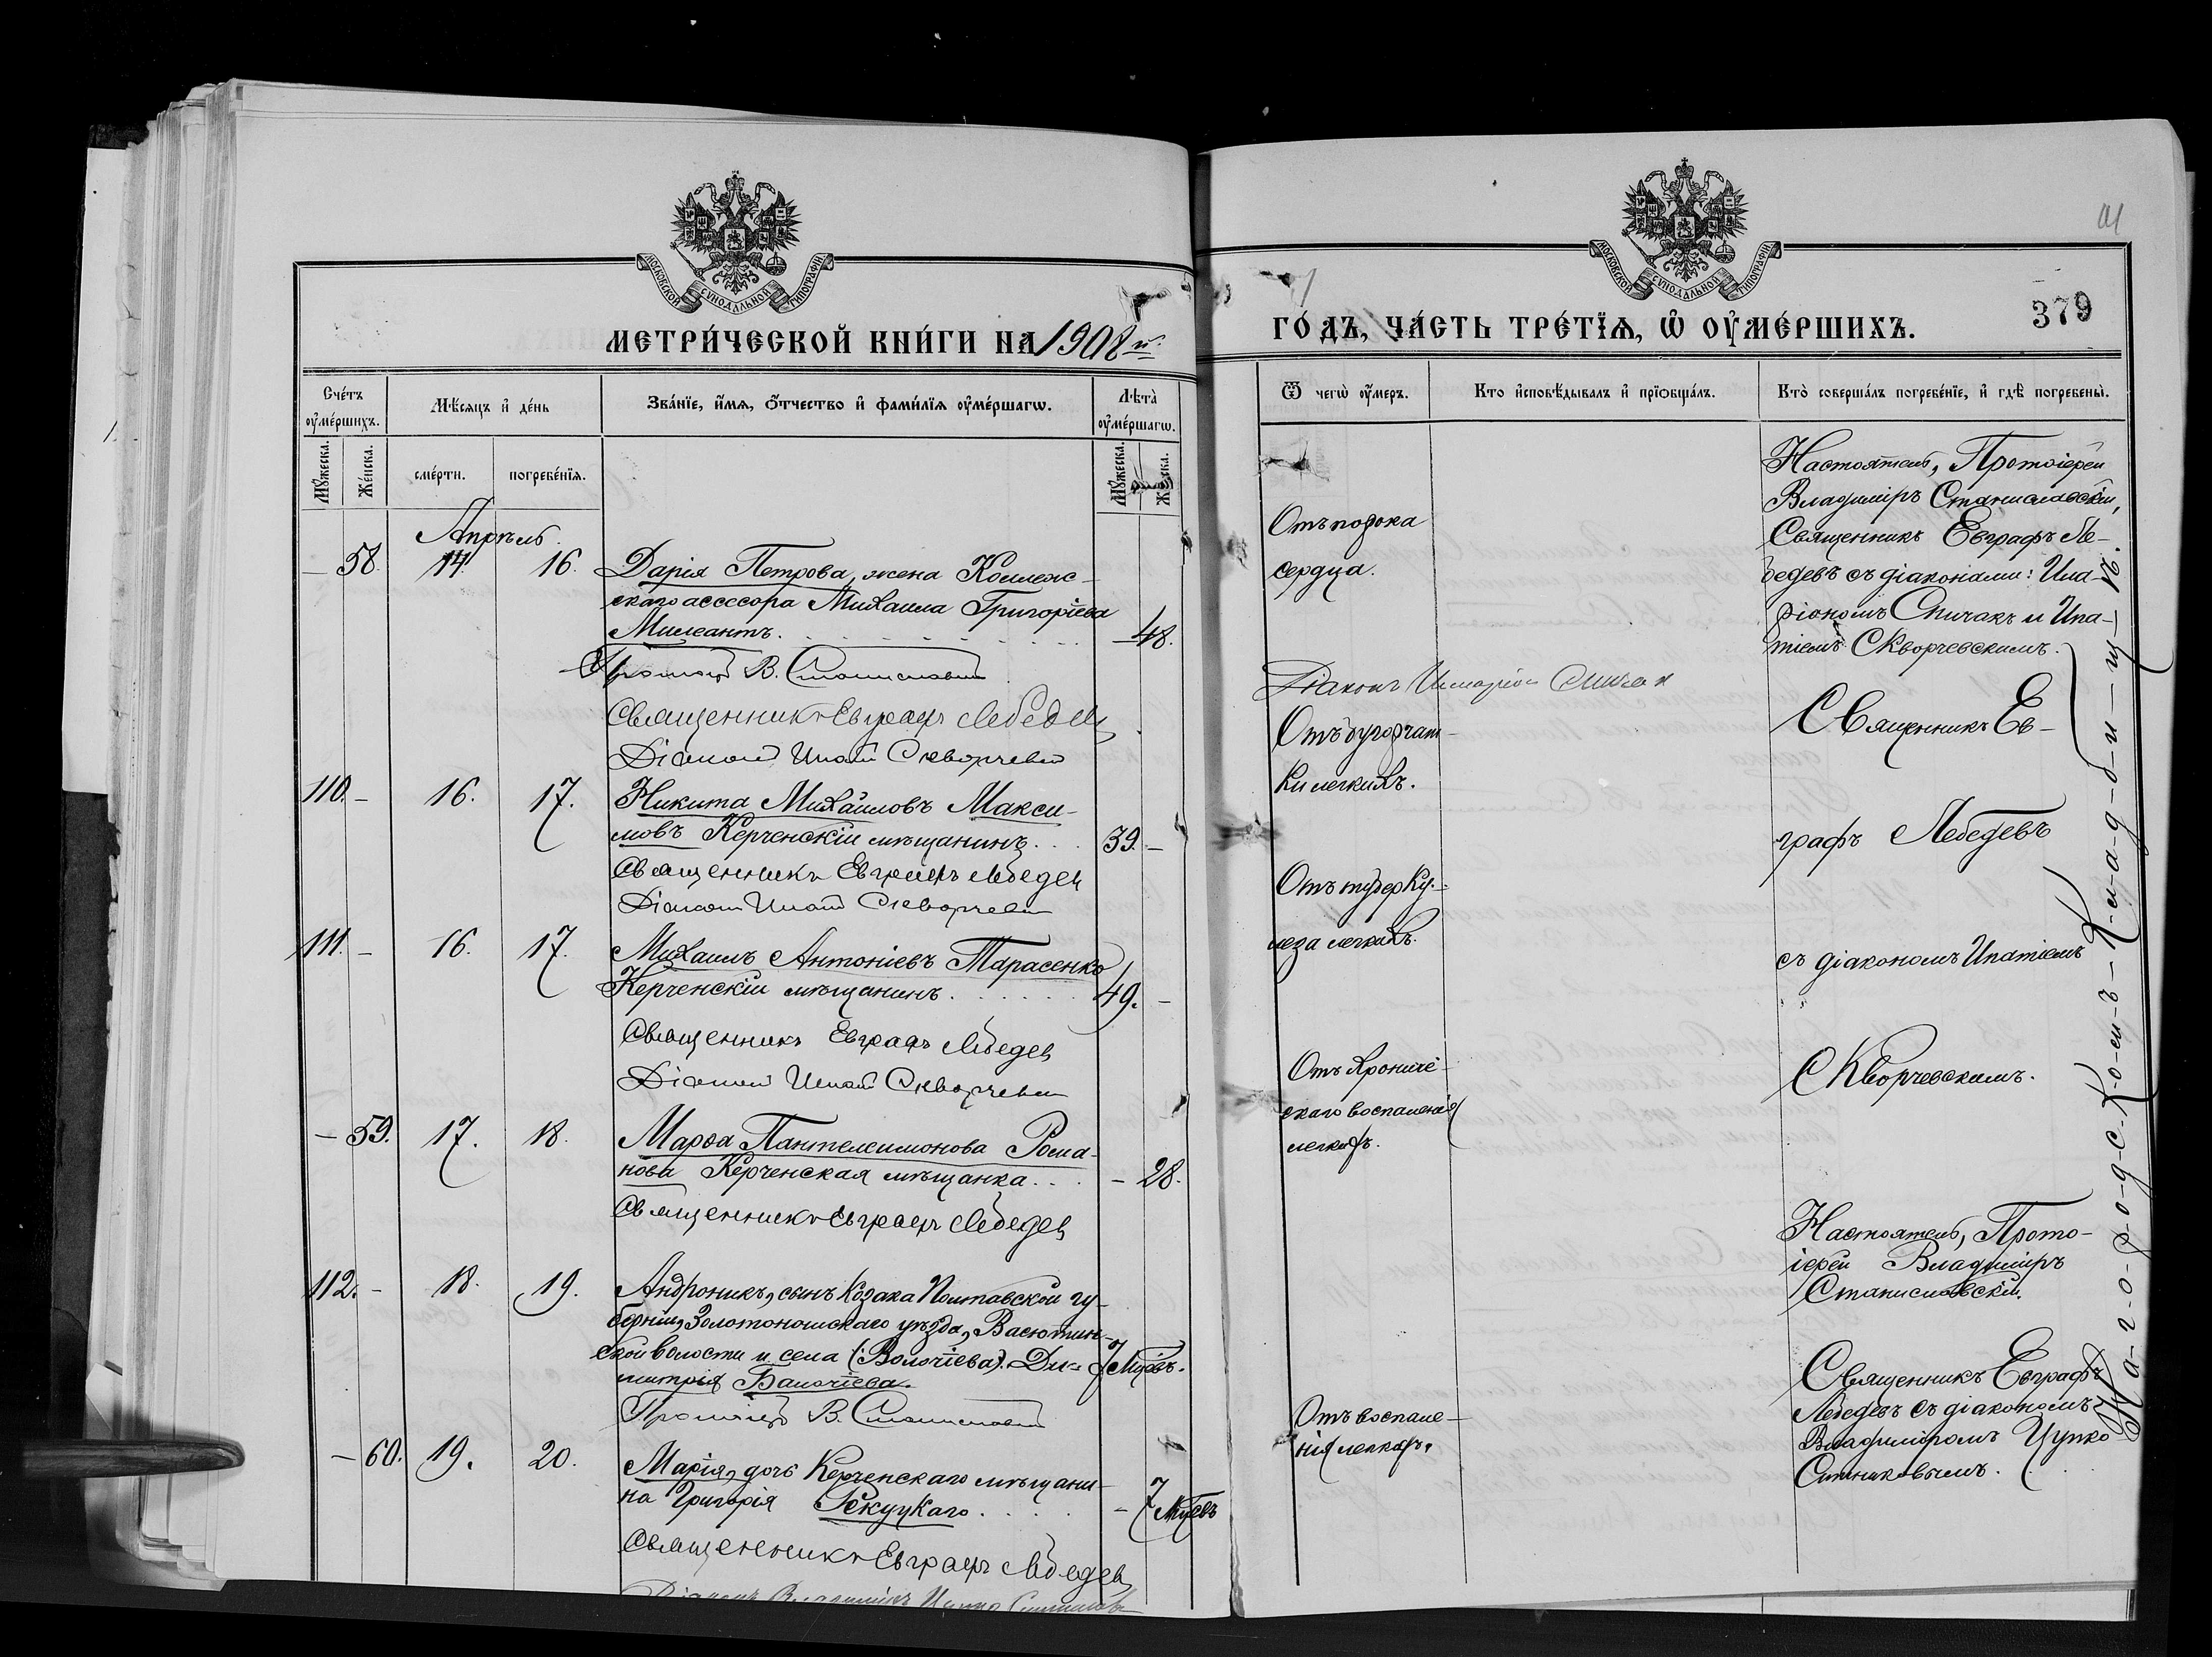 МОСКОВСКОЙ СУНОДАЛЬНОЙ ТИПОГРАФІИ
МЕТРИ́ЧЕСКОЙ КНИ́ГИ НА 1908 й.
Сче́тъ оу҆ме́ршихъ.
Мѣ́сяцъ и҆ де́нь
Зва́нїе, и҆́мѧ, ѻ҆́тчество и҆ фами́лїѧ оу҆ме́ршагѡ.
Лѣта̀ оу҆ме́ршагѡ.
Мꙋ́жеска.
Же́нска.
сме́рти.
погребе́нїѧ.
Мꙋ́жеска.
Апрѣль.
— 58. 14. 16. Дарія Петрова, жена Коллеж-
скаго ассесора Михаила Григоріева
— 48.
Протоіер В. Станиславскій
Священникъ Евграфъ Лебедев
Діакон Ипатій Скворчевскій
110. — 16. 17. Никита Михайловъ Макси-
мовъ Керченскій мѣщанинъ. . . 39. —
Священникъ Евграфъ Лебедев
Діакон Ипатій Скворчевскій
111. — 16. 17. Михаилъ Антоніевъ Тарасенко
Керченскій мѣщанинъ . . . . . . 49. —
Священникъ Евграфъ Лебедев
Діакон Ипатій Скворчевскій
— 59. 17. 18. Марѳа Пантелеимонова Рома-
нова Керченская мѣщанка. . . — 28.
Священникъ Евграфъ Лебедев
112. — 18. 19. Андроникъ, сынъ Козака Полтавской гу-
берніи, Золотоношскаго уѣзда, Васютин-
ской волости и села (Волочіева). Ди- 7 Мцевъ.
митрія Балочіева.
Протоіер В. Станиславскій
— 60. 19. 20. Марія, дочь Керченскаго мѣщани-
на Григорія Рекуцкаго . . . . . — 7 Мцевъ
Священникъ Евграфъ Лебедев
Діаконъ Владиміръ Цупко Ситников
МОСКОВСКОЙ СУНОДАЛЬНОЙ ТИПОГРАФІИ
379
ГО́ДЪ, ЧА́СТЬ ТРЕ́ТЇѦ, Ѡ҆ ОУ҆МЕ́РШИХЪ.
Ѿ чегѡ̀ оу҆́меръ.
Кто̀ и҆сповѣ́дывалъ и҆ прїѻбща́лъ.
Кто̀ соверша́лъ погребе́нїе, и҆ гдѣ̀ погребены̀.
Отъ порока
сердца.
Настоятель, Протоіерей
Владиміръ Станиславскій,
Священникъ Евграфъ Ле-
бедевъ съ діаконами: Ила-
ріономъ Спичакъ и Ипа-
тіемъ Скворчевскимъ.
Діаконъ Иларіон Спичак
Отъ бугорчат-
ки легкихъ.
Священникъ Ев-
графъ Лебедевъ
Отъ туберку-
леза легкихъ.
съ діакономъ Ипатіемъ
Скворчевскимъ.
Отъ хрониче-
скаго воспаленія
легкихъ.
Настоятель, Прото-
іерей Владиміръ
Станиславскій.
Отъ воспале-
нія легкихъ.
Священникъ Евграфъ
Лебедевъ съ діакономъ
Владиміромъ Цупко
Ситниковымъ.
На-г-о-р-о-д-с-к-о-м-ъ-К-л-а-д-б-и-щ-ѣ.